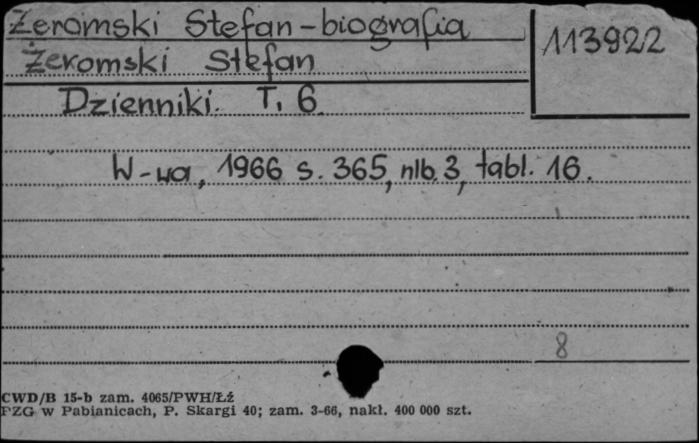 Żeromski Stefan - biografia
113922
Żeromski Stefan
Dzienniki. T. 6.
W-wa, 1966 s. 365, nlb. 3, tabl. 16.
8
CWD/B 15-b zam. 4065/PWH/Łź
PZG w Pabianicach, P. Skargi 40; zam. 3-66, nakł. 400 000 szt.